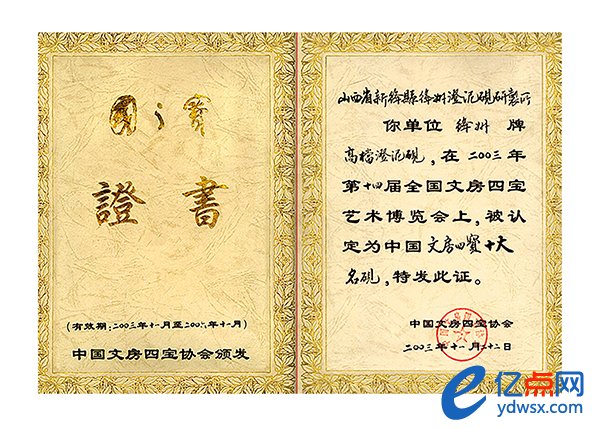 国之寳
證書
(有效期:二〇〇三年十一月至二〇〇八年十一月)
中国文房四宝协会颁发
山西省新绛縣绛州澄泥硯研製所
你单位 绛州 牌
高檔澄泥硯,在二〇〇三年
第十四届全国文房四宝
艺术博览会上,被认
定为中国文房四寳十大
名硯,特发此证。
中国文房四宝协会
二〇〇三年十一月二十二日
亿点网
ydwsx.com